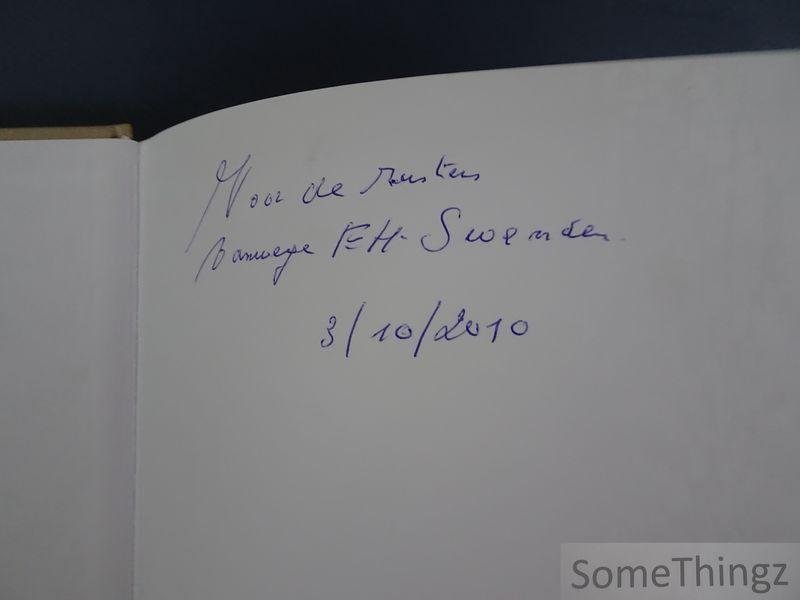 Voor de zusters
vanwege EH. Swenden
3/10/2010
SomeThingz